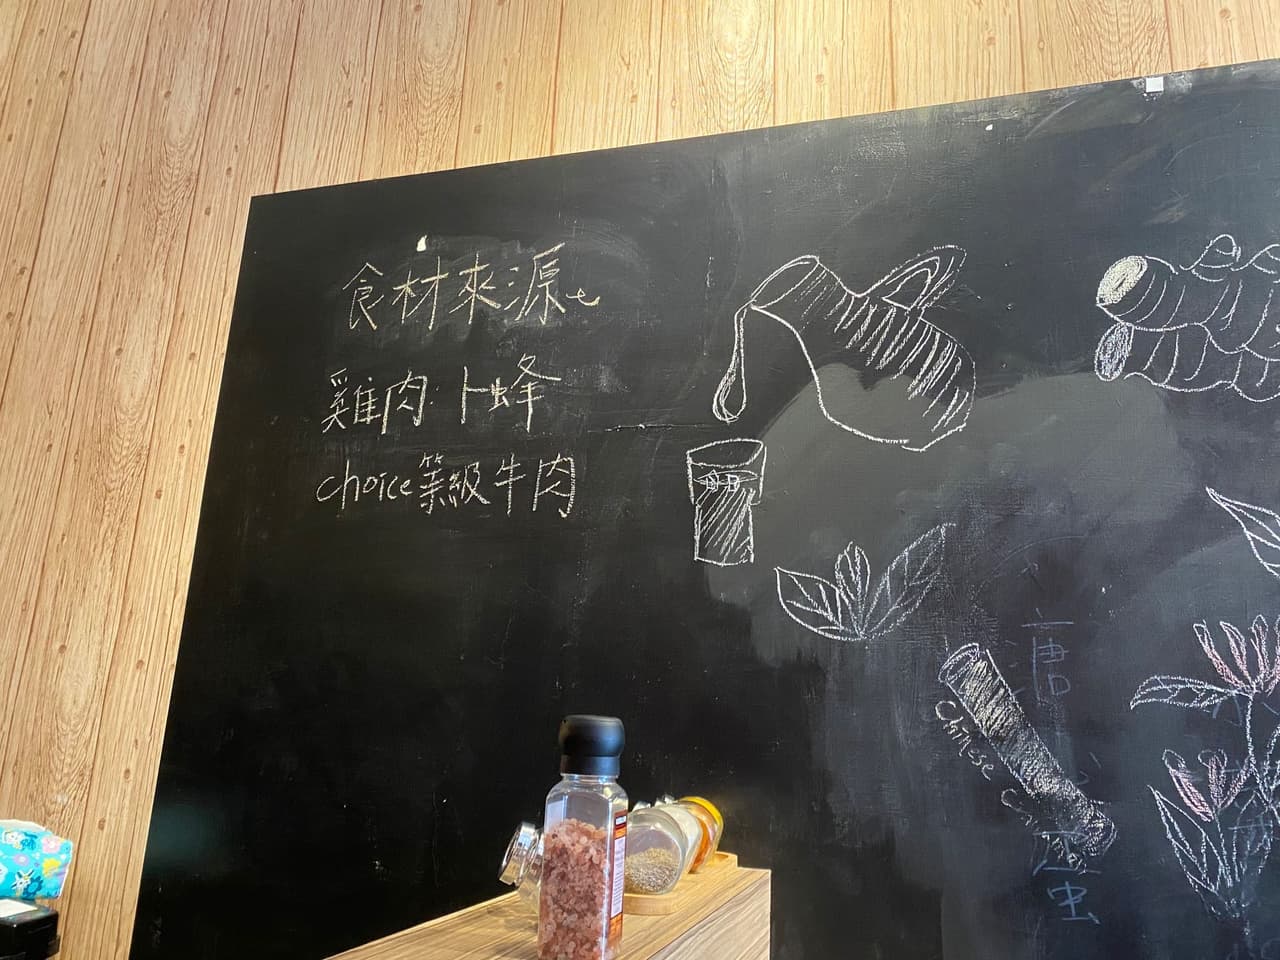 食材來源
雞肉·卜蜂
choice等級牛肉
Chinese